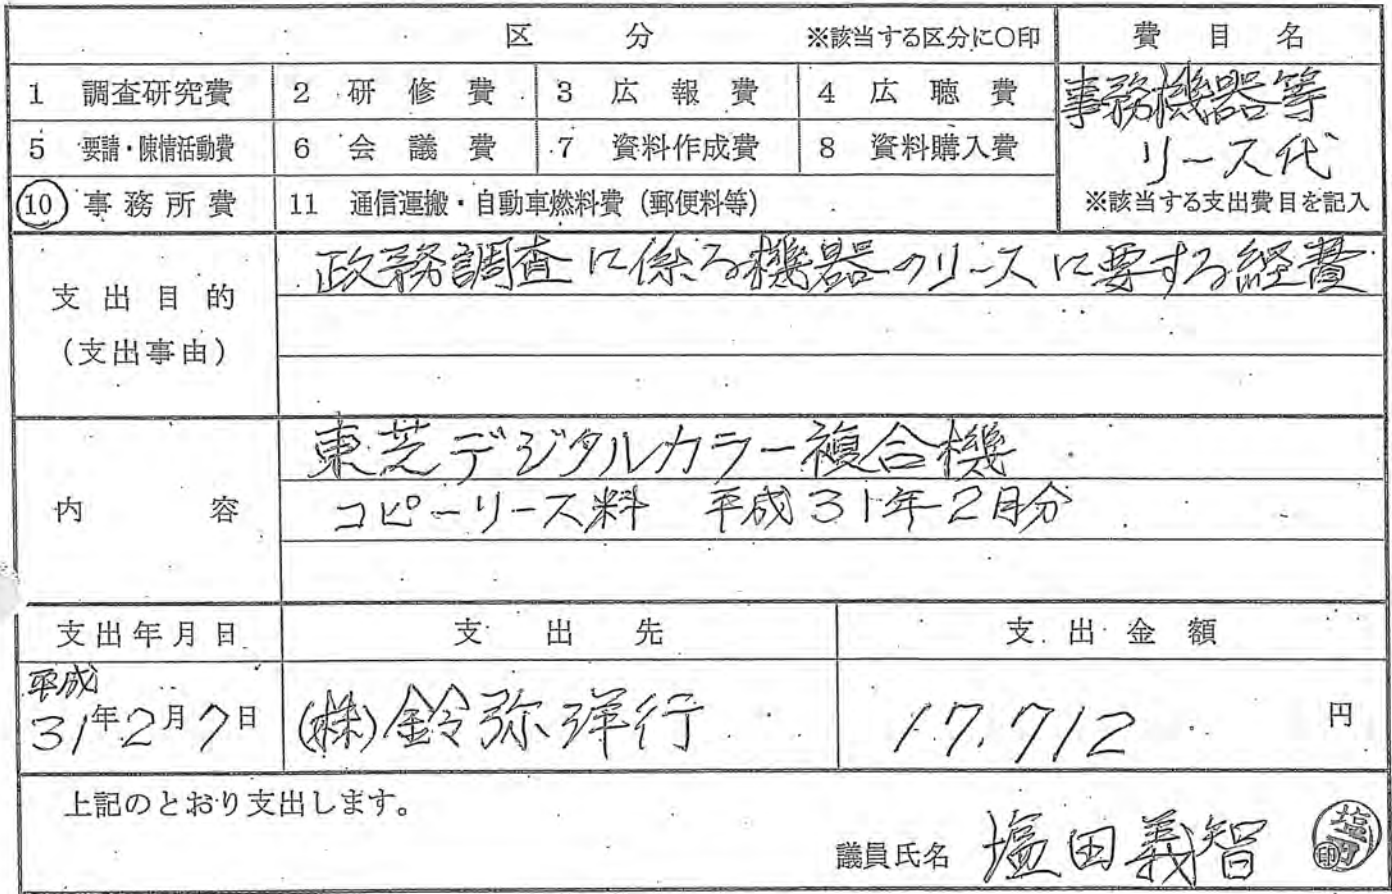 区分 ※該当する区分に○印 費目名
1 調査研究費 2 研修費 3 広報費 4 広聴費 事務機器等
5 要請・陳情活動費 6 会議費 7 資料作成費 8 資料購入費 リース代
⑩ 事務所費 11 通信運搬・自動車燃料費(郵便料等) ※該当する支出費目を記入
支出目的 政務調査に係る機器のリースに要する経費
(支出事由)
東芝デジタルカラー複合機
内容 コピーリース料 平成31年2月分
支出年月日 支出先 支出金額
平成
31年2月7日 (株)鈴弥洋行 17,712 円
上記のとおり支出します。
議員氏名 塩田義智 印